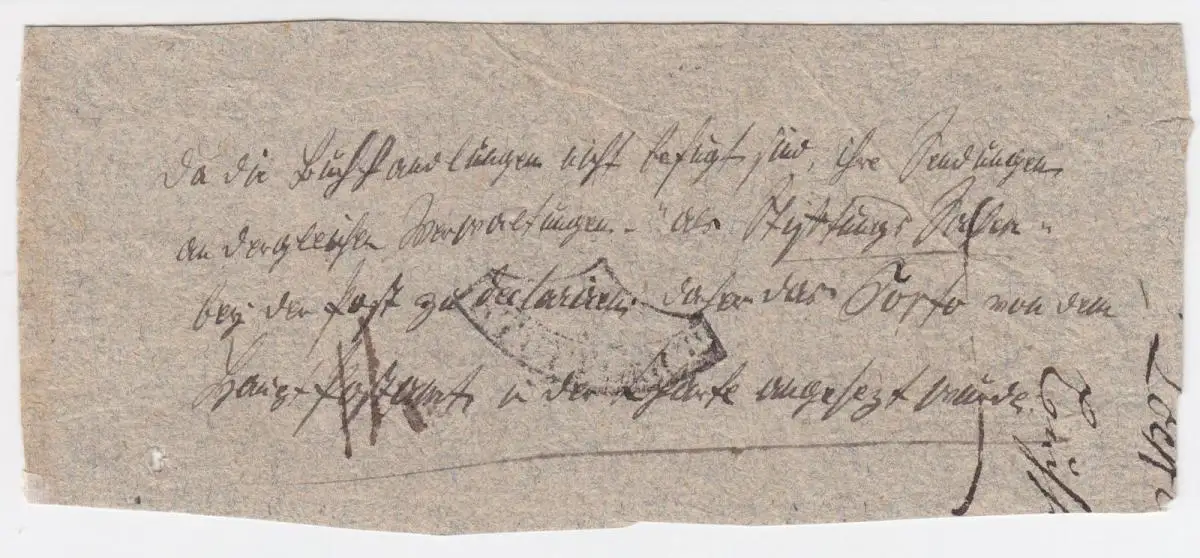 Da die Buchhandlungen nicht befugt sind, ihre Sendungen
an dergleichen Verwaltungen - "als Stiftungs Sachen"
bey der Post zu declariren, daher das Porto von dem
Haupt Postamt in der Charte angesetzt wurde.